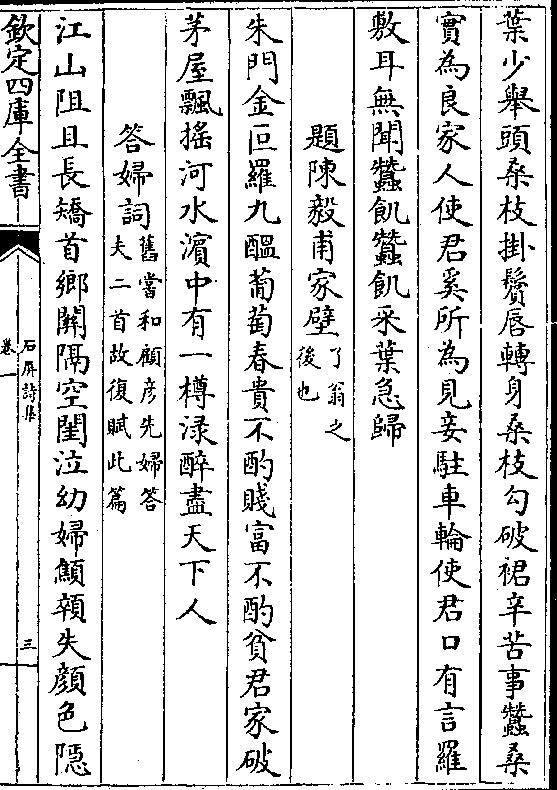 葉少舉頭桑枝掛鬢唇轉身桑枝勾破裙辛苦事蠶桑
實為良家人使君奚所為見妾駐車輪使君口有言羅
敷耳無聞蠶飢蠶飢采葉急歸
題陳毅甫家壁了翁之後也
朱門金叵羅九醞葡萄春貴不酌賤富不酌貧君家破
茅屋飄搖河水濱中有一樽渌醉盡天下人
答婦詞舊嘗和顧彦先婦答夫二首故復賦此篇
江山阻且長矯首鄉關隔空閨泣幼婦顦顇失顔色隠
欽定四庫全書
石屏詩集
卷一
三